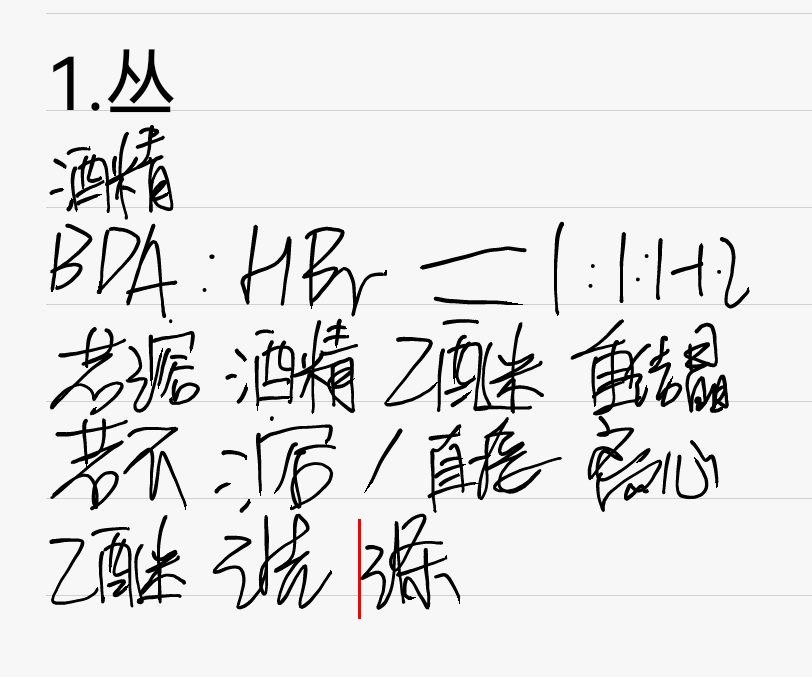 1.丛
酒精
BDA:HBr=1:1.1-1.2
若泥 酒精 乙醚 重结晶
若不 泥/直接 离心
乙醚 洗涤